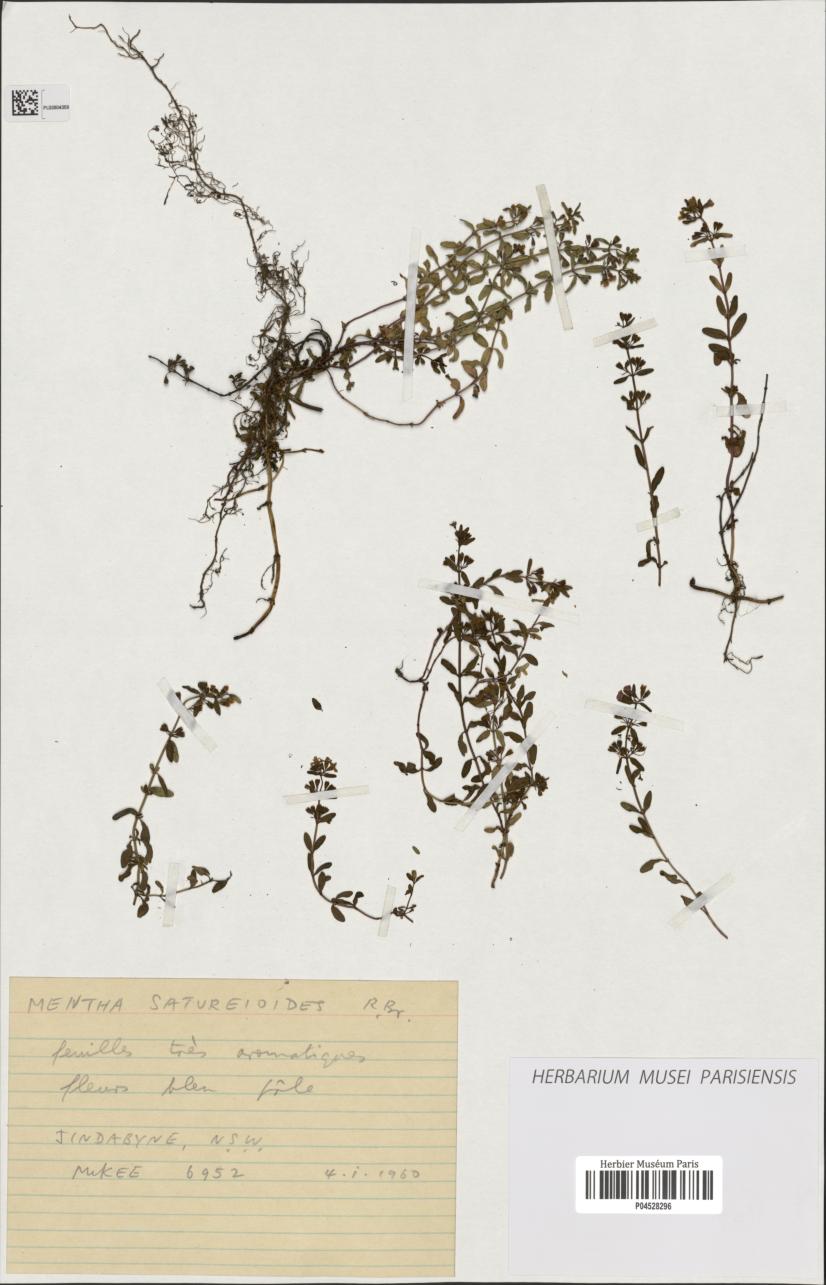 MENTHA SATUREIOIDES R.Br.
feuilles très aromatiques
fleurs bleu pâle
JINDABYNE, NSW
McKEE 6952 4.i.1960
HERBARIUM MUSEI PARISIENSIS
Herbier Muséum Paris
P04528296